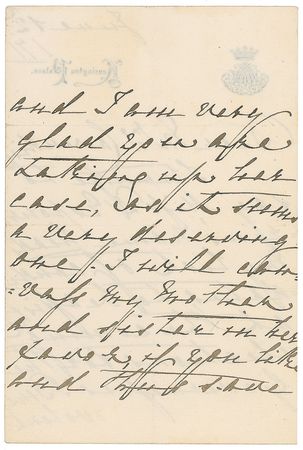 and I am very
glad you are
taking up her
case, as it seems
a very deserving
one. I will can-
=vass my Mother
and sister in her
favor, if you like
and thus save